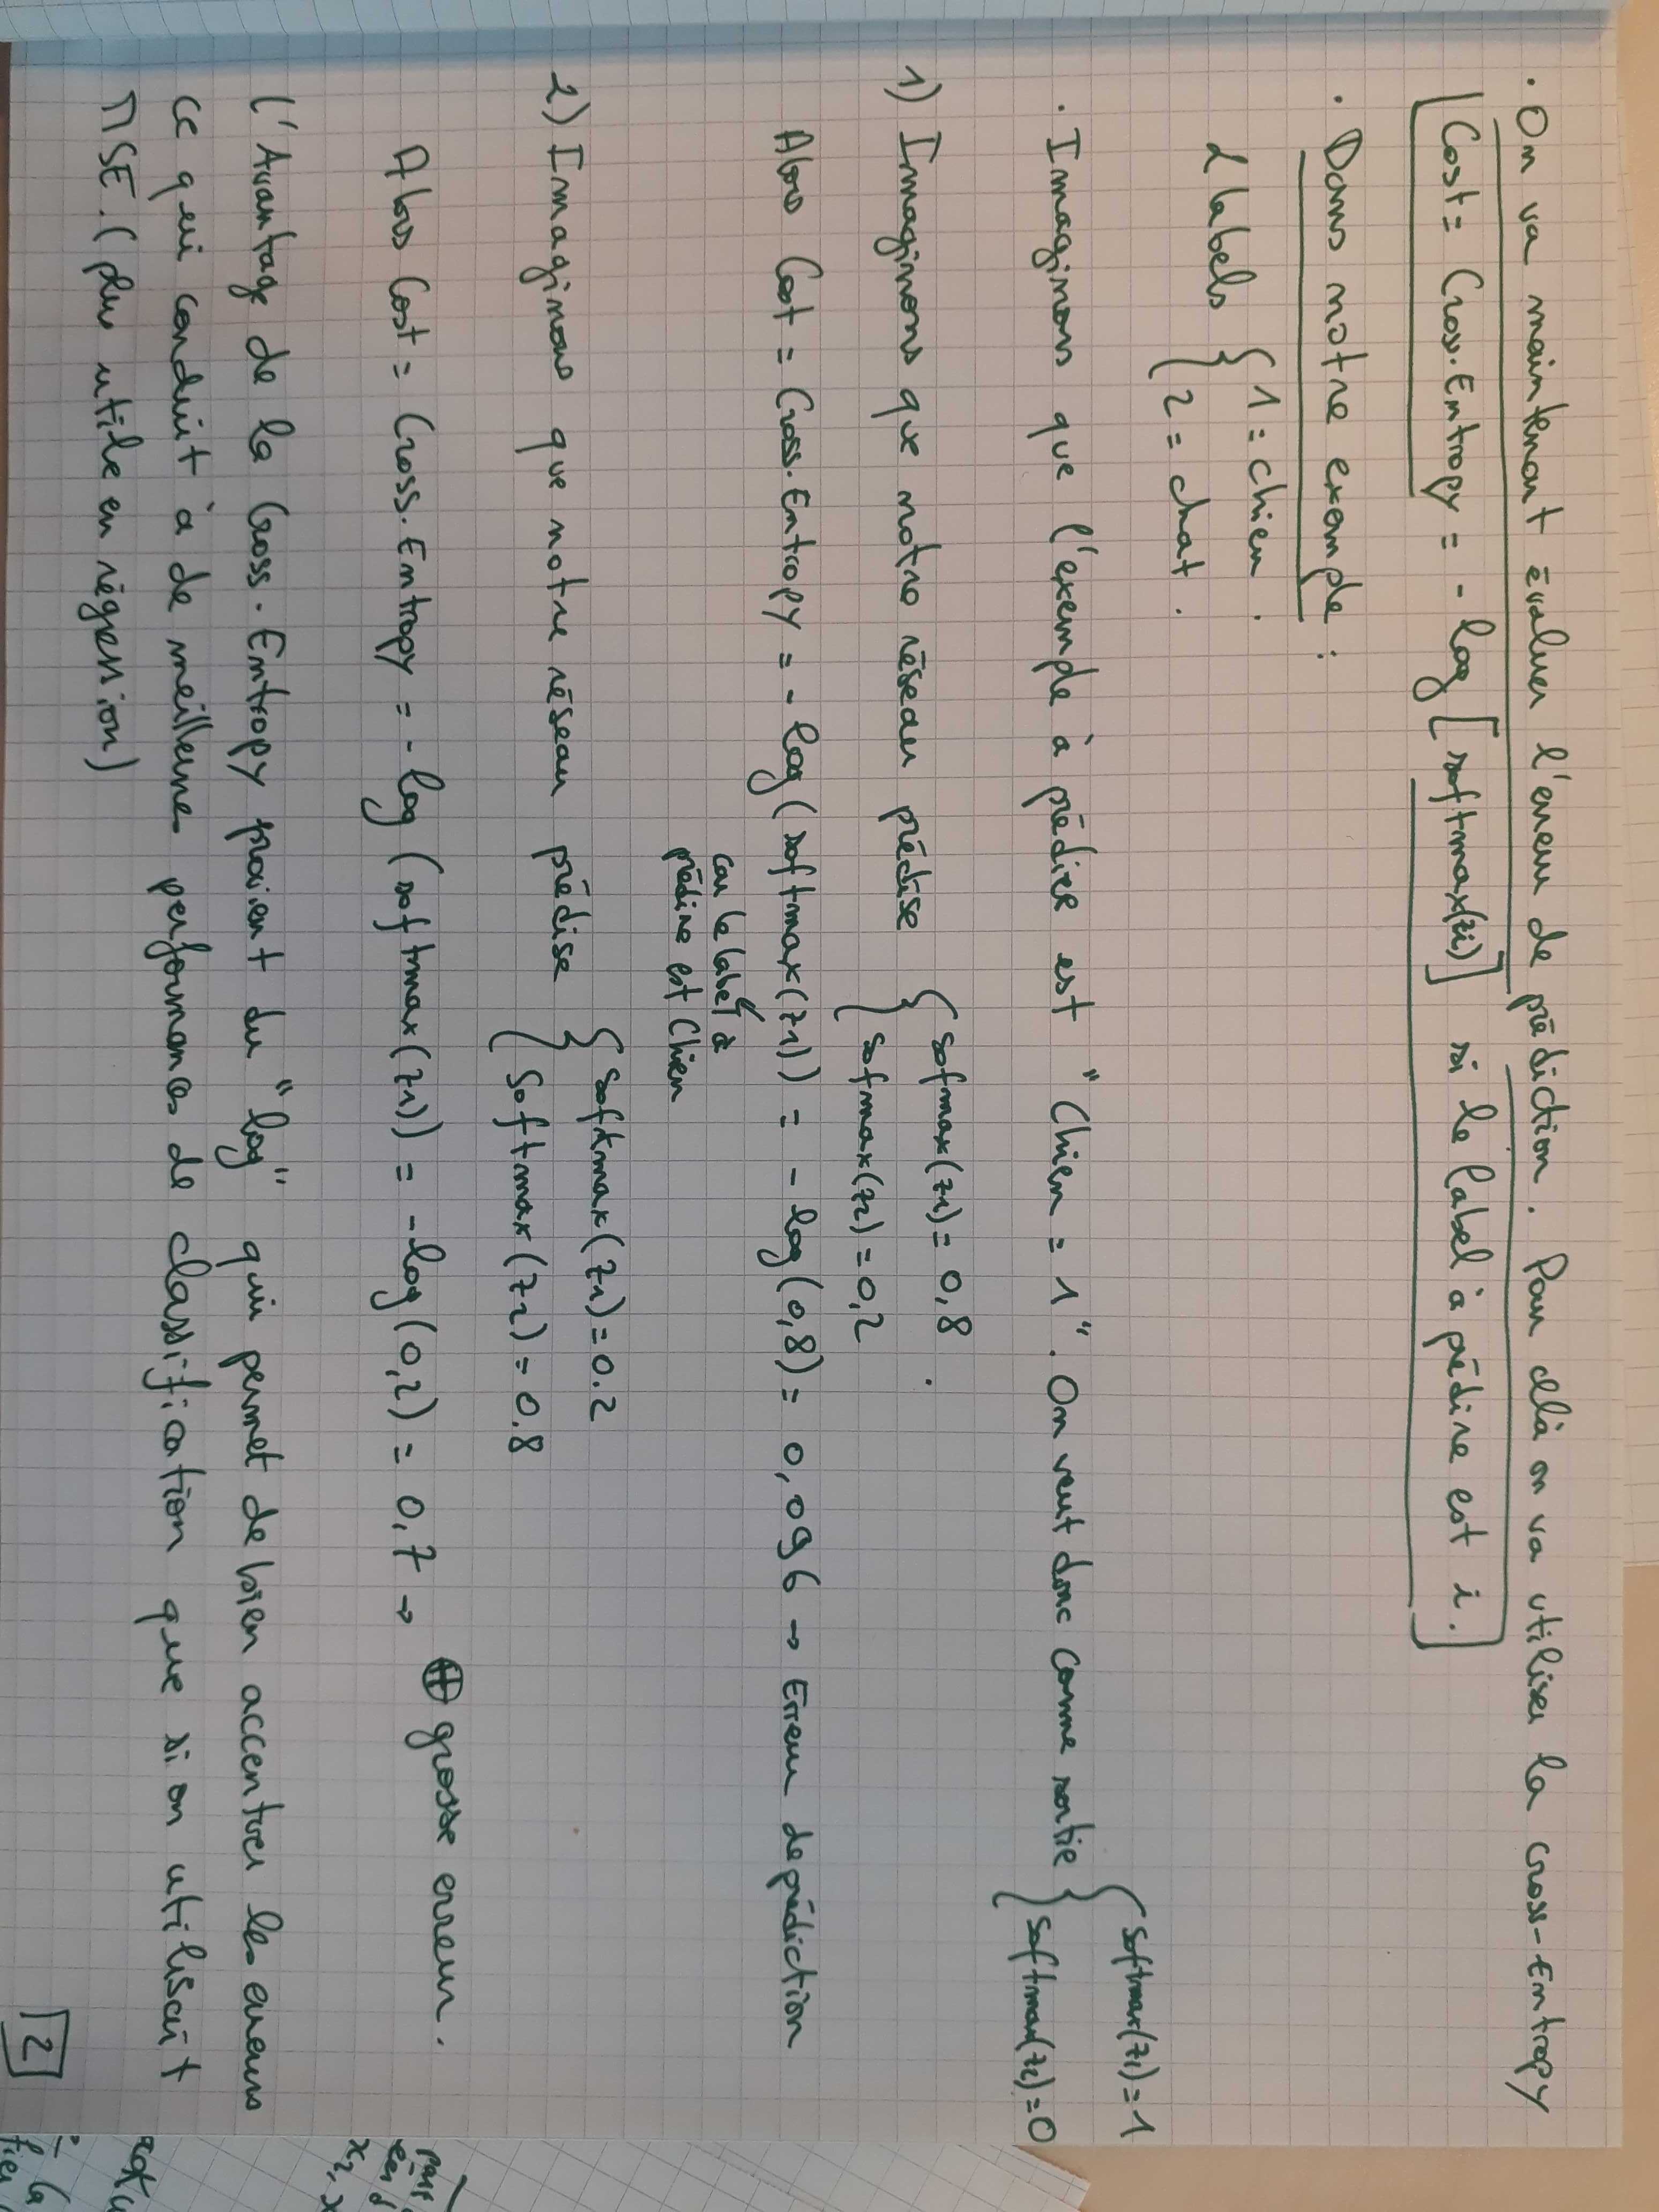 · On va maintenant évaluer l'erreur de prédiction. Pour celà on va utiliser la cross-Entropy
Cost = Cross.Entropy = - log [softmax(zi)] si le label à prédire est i.
· Dans notre exemple :
2 labels { 1 = chien .
{ 2 = chat .
· Imaginons que l'exemple à prédire est "Chien = 1". On veut donc comme sortie { softmax(z1) = 1
{ softmax(z2) = 0
1) Imaginons que notre réseau prédise { sofmax(z1) = 0,8 .
{ sofmax(z2) = 0,2
Alors Cost = Cross.Entropy = - log(softmax(z1)) = - log(0,8) = 0,096 → Erreur de prédiction
car le label à
prédire est Chien
2) Imaginons que notre réseau prédise { softmax(z1) = 0.2
{ softmax(z2) = 0.8
Alors Cost = Cross.Entropy = - log(softmax(z1)) = -log(0,2) = 0,7 → ⊕ grosse erreur.
L'Avantage de la Cross.Entropy provient du "log" qui permet de bien accentuer les erreurs
ce qui conduit à de meilleure performances de classification que si on utilisait
MSE. (plus utile en régression)
2